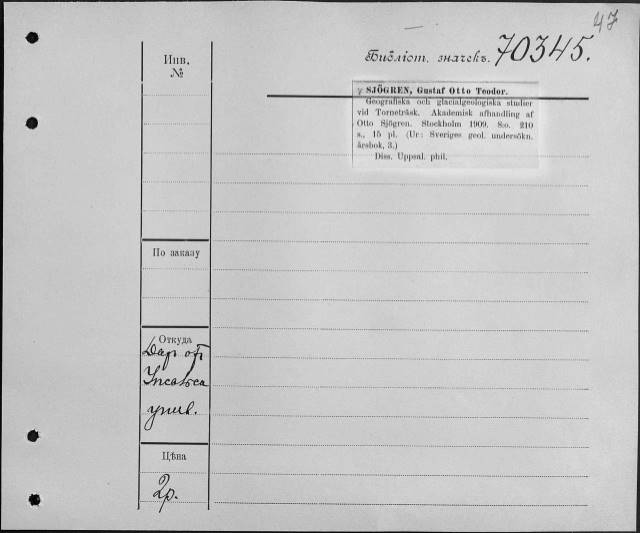 47
Библіот. значекъ. 70345.
Инв.
№
SJÖGREN, Gustaf Otto Teodor.
Geografiska och glacialgeologiska studier
vid Torneträsk. Akademisk afhandling af
Otto Sjögren. Stockholm 1909. 8:o. 210
s., 15 pl. (Ur: Sveriges geol. undersökn.
årsbok, 3.)
Diss. Uppsal. phil.
По заказу
Откуда
Даръ отъ
унив.
Цѣна
2р.